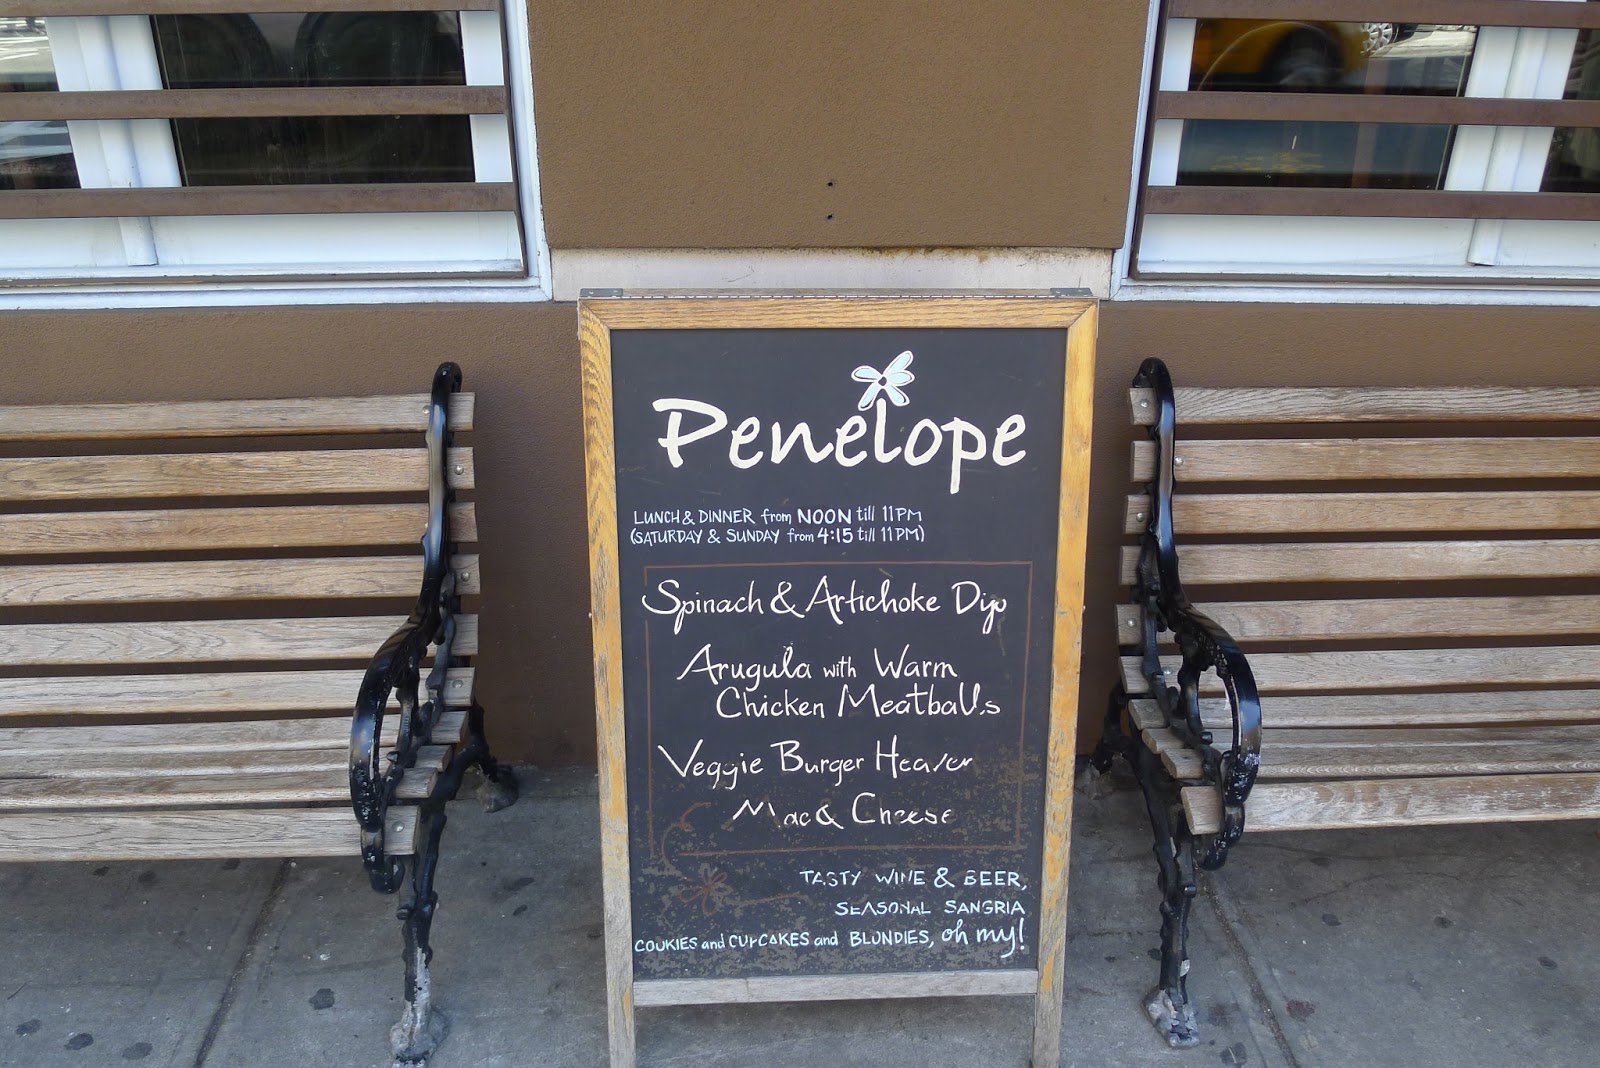 Penelope
LUNCH & DINNER from NOON till 11PM
(SATURDAY & SUNDAY from 4:15 till 11PM)
Spinach & Artichoke Dip
Arugula with Warm
Chicken Meatballs
Veggie Burger Heaven
Mac & Cheese
TASTY WINE & BEER,
SEASONAL SANGRIA
COOKIES and CUPCAKES and BLONDIES, oh my!